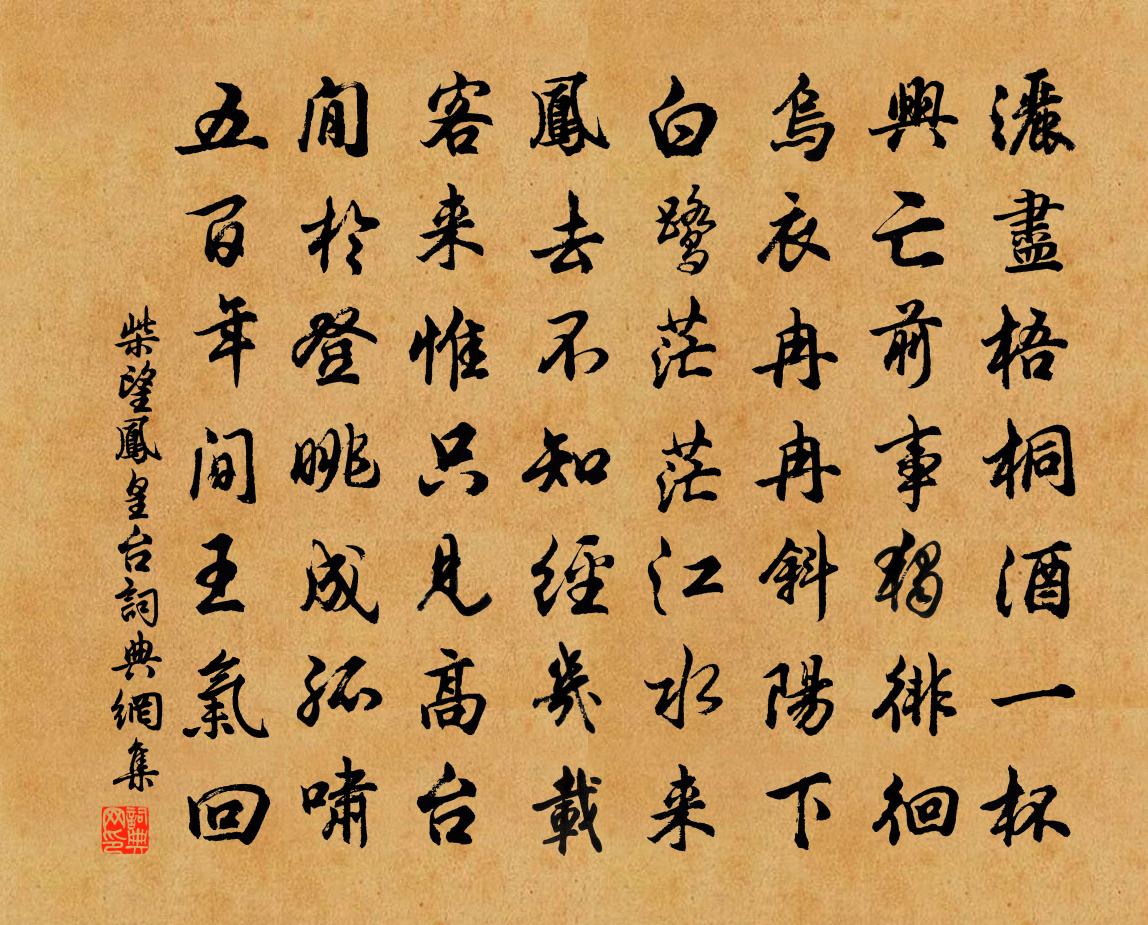 灑盡梧桐酒一杯
興亡前事獨徘徊
烏衣冉冉斜陽下
白鷺茫茫江水来
鳳去不知經幾載
客来惟只見高台
閒於登眺成孤嘯
五百年間王氣回
柴望鳳皇台詞典網集
詞典网印